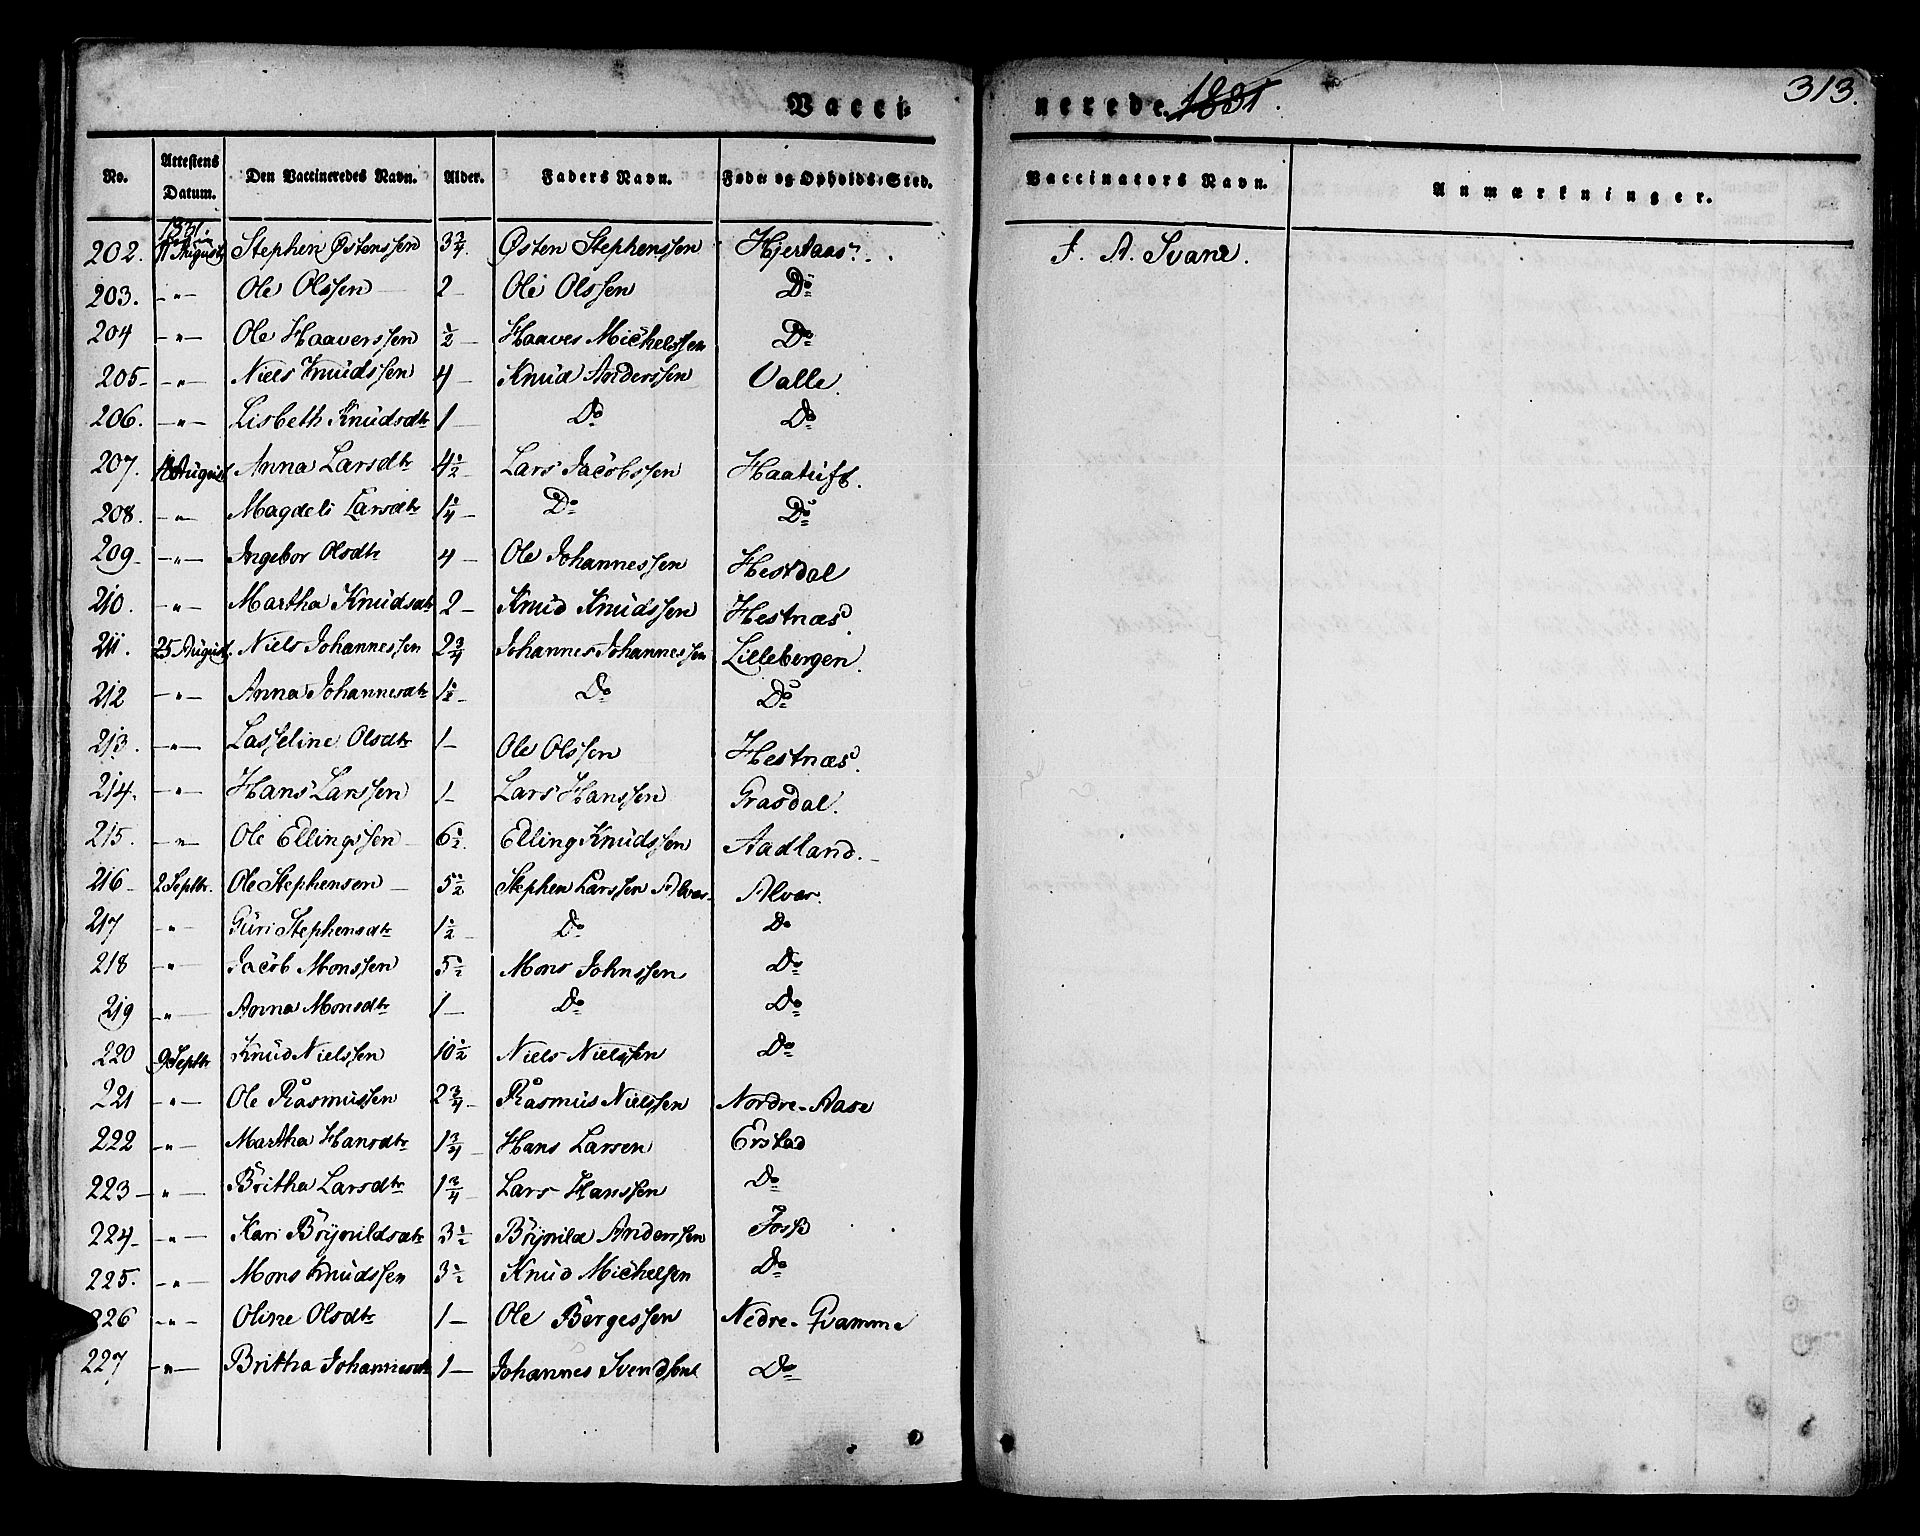 Vacci- nerede 1831. 313.
No. Attestens Datum. Den Vaccineredes Navn. Alder. Faders Navn. Føde og Opholds-Sted. Vaccinators Navn. Anmærkninger.
1831.
202. 11 August Stephen Østenssen 3 3/4. Østen Stephenssen Hjertaas. F. A. Svane.
203. -"- Ole Olssen 2 Ole Olssen Do
204 -"- Ole Haaverssen 1/2 Haaver Michelssen Do
205 -"- Niels Knudssen 4 Knud Anderssen Valle.
206. -"- Lisbeth Knudsdtr 1 Do Do
207. 18 August Anna Larsdtr 4 1/2 Lars Jacobssen Haatuft.
208. -"- Magdeli Larsdtr 1 1/4 Do Do
209 -"- Ingebor Olsdtr 4 Ole Johannessen Hestdal
210. -"- Martha Knudsdtr 2 Knud Knudssen Hestnæs
211. 25 August. Niels Johannessen 2 3/4 Johannes Johannessen Lillebergen.
212 -"- Anna Johannesdtr 1 1/2 Do Do
213. -"- Lasseline Olsdtr 1 Ole Olssen Hestnæs.
214. -"- Hans Larssen 1 Lars Hanssen Grasdal.
215. -"- Ole Ellingssen 6 1/2. Elling Knudssen Aadland.
216 2 Septbr. Ole Stephensen 5 1/2 Stephen Larssen Alver Alver.
217 -"- Guri Stephensdtr 1 1/2 Do Do
218 -"- Jacob Monssen 5 1/2 Mons Johnssen Do
219 -"- Anna Monsdtr 1 Do Do
220 9 Septbr Knud Nielssen 10 1/2 Niels Nielssen Do
221 -"- Ole Rasmussen 2 3/4 Rasmus Nielssen Nordre-Aase
222 -"- Martha Hansdtr 1 3/4 Hans Larsen Erstad
223 -"- Britha Larsdtr 1 3/4 Lars Hanssen Do
224 -"- Kari Brynildsdtr 3 1/2 Brynild Anderssen Foss
225. -"- Mons Knudssen 3 1/2 Knud Michelsen Do
226 -"- Oline Olsdtr 1 Ole Børgessen Nedre-Qvamme
227 -"- Britha Johannesdtr 1 Johannes Svendsen Do